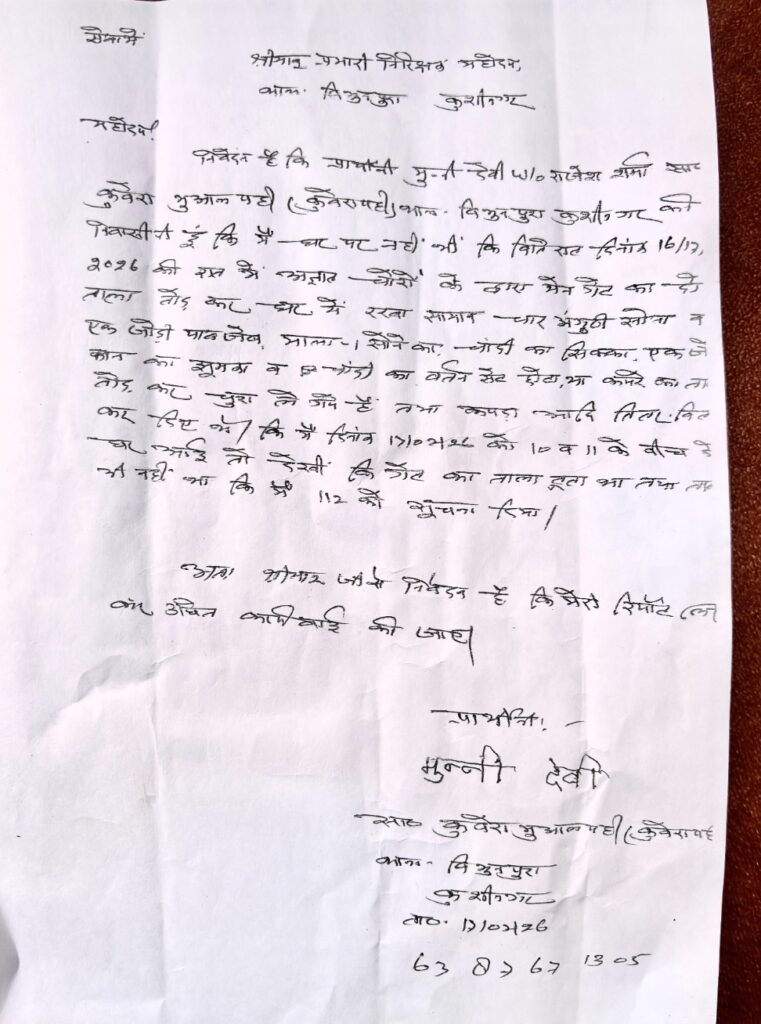 सेवामें
श्रीमान प्रभारी निरिक्षक महोदय,
थाना- विशुनपुरा कुशीनगर
महोदय!
निवेदन है कि प्रार्थीनी मुन्नी देवी W/o राजेश शर्मा सा०
कुबेरा भुआल पट्टी (कुबेरापट्टी) थाना- विशुनपुरा कुशीनगर की
निवासीनी हूं कि मैं घर पर नहीं थी कि बिते रात दिनांक 16/17,
2026 की रात में अज्ञात चोरों के द्वारा मेन गेट का
ताला तोड़ कर घर में रखा सामान चार अंगुठी सोना व
एक जोड़ी पायजेब, माला-1 सोने का, चांदी का सिक्का, एक
कान का झुमका व चांदी का बर्तन सेट छोटा, था कमरे का
तोड़ कर चुरा ले गये हैं तथा कपड़ा आदि तितर-बित
कर दिए थे/ कि मैं दिनांक 17/02/26 को 10 व 11 के बीच
घर आई तो देखी कि गेट का ताला टूटा था तथा
भी नहीं था कि मैं 112 को सूचना दिया/
अतः श्रीमान जी से निवेदन है कि मेरी रिपोर्ट
कर उचित कार्यवाई की जाए/
प्रार्थीनि! -
मुन्नी देवी
सा० कुबेरा भुआलपट्टी (कुबेरापट्टी
थाना- विशुनपुरा
कुशीनगर
ता०- 17/02/26
63 87 67 1305